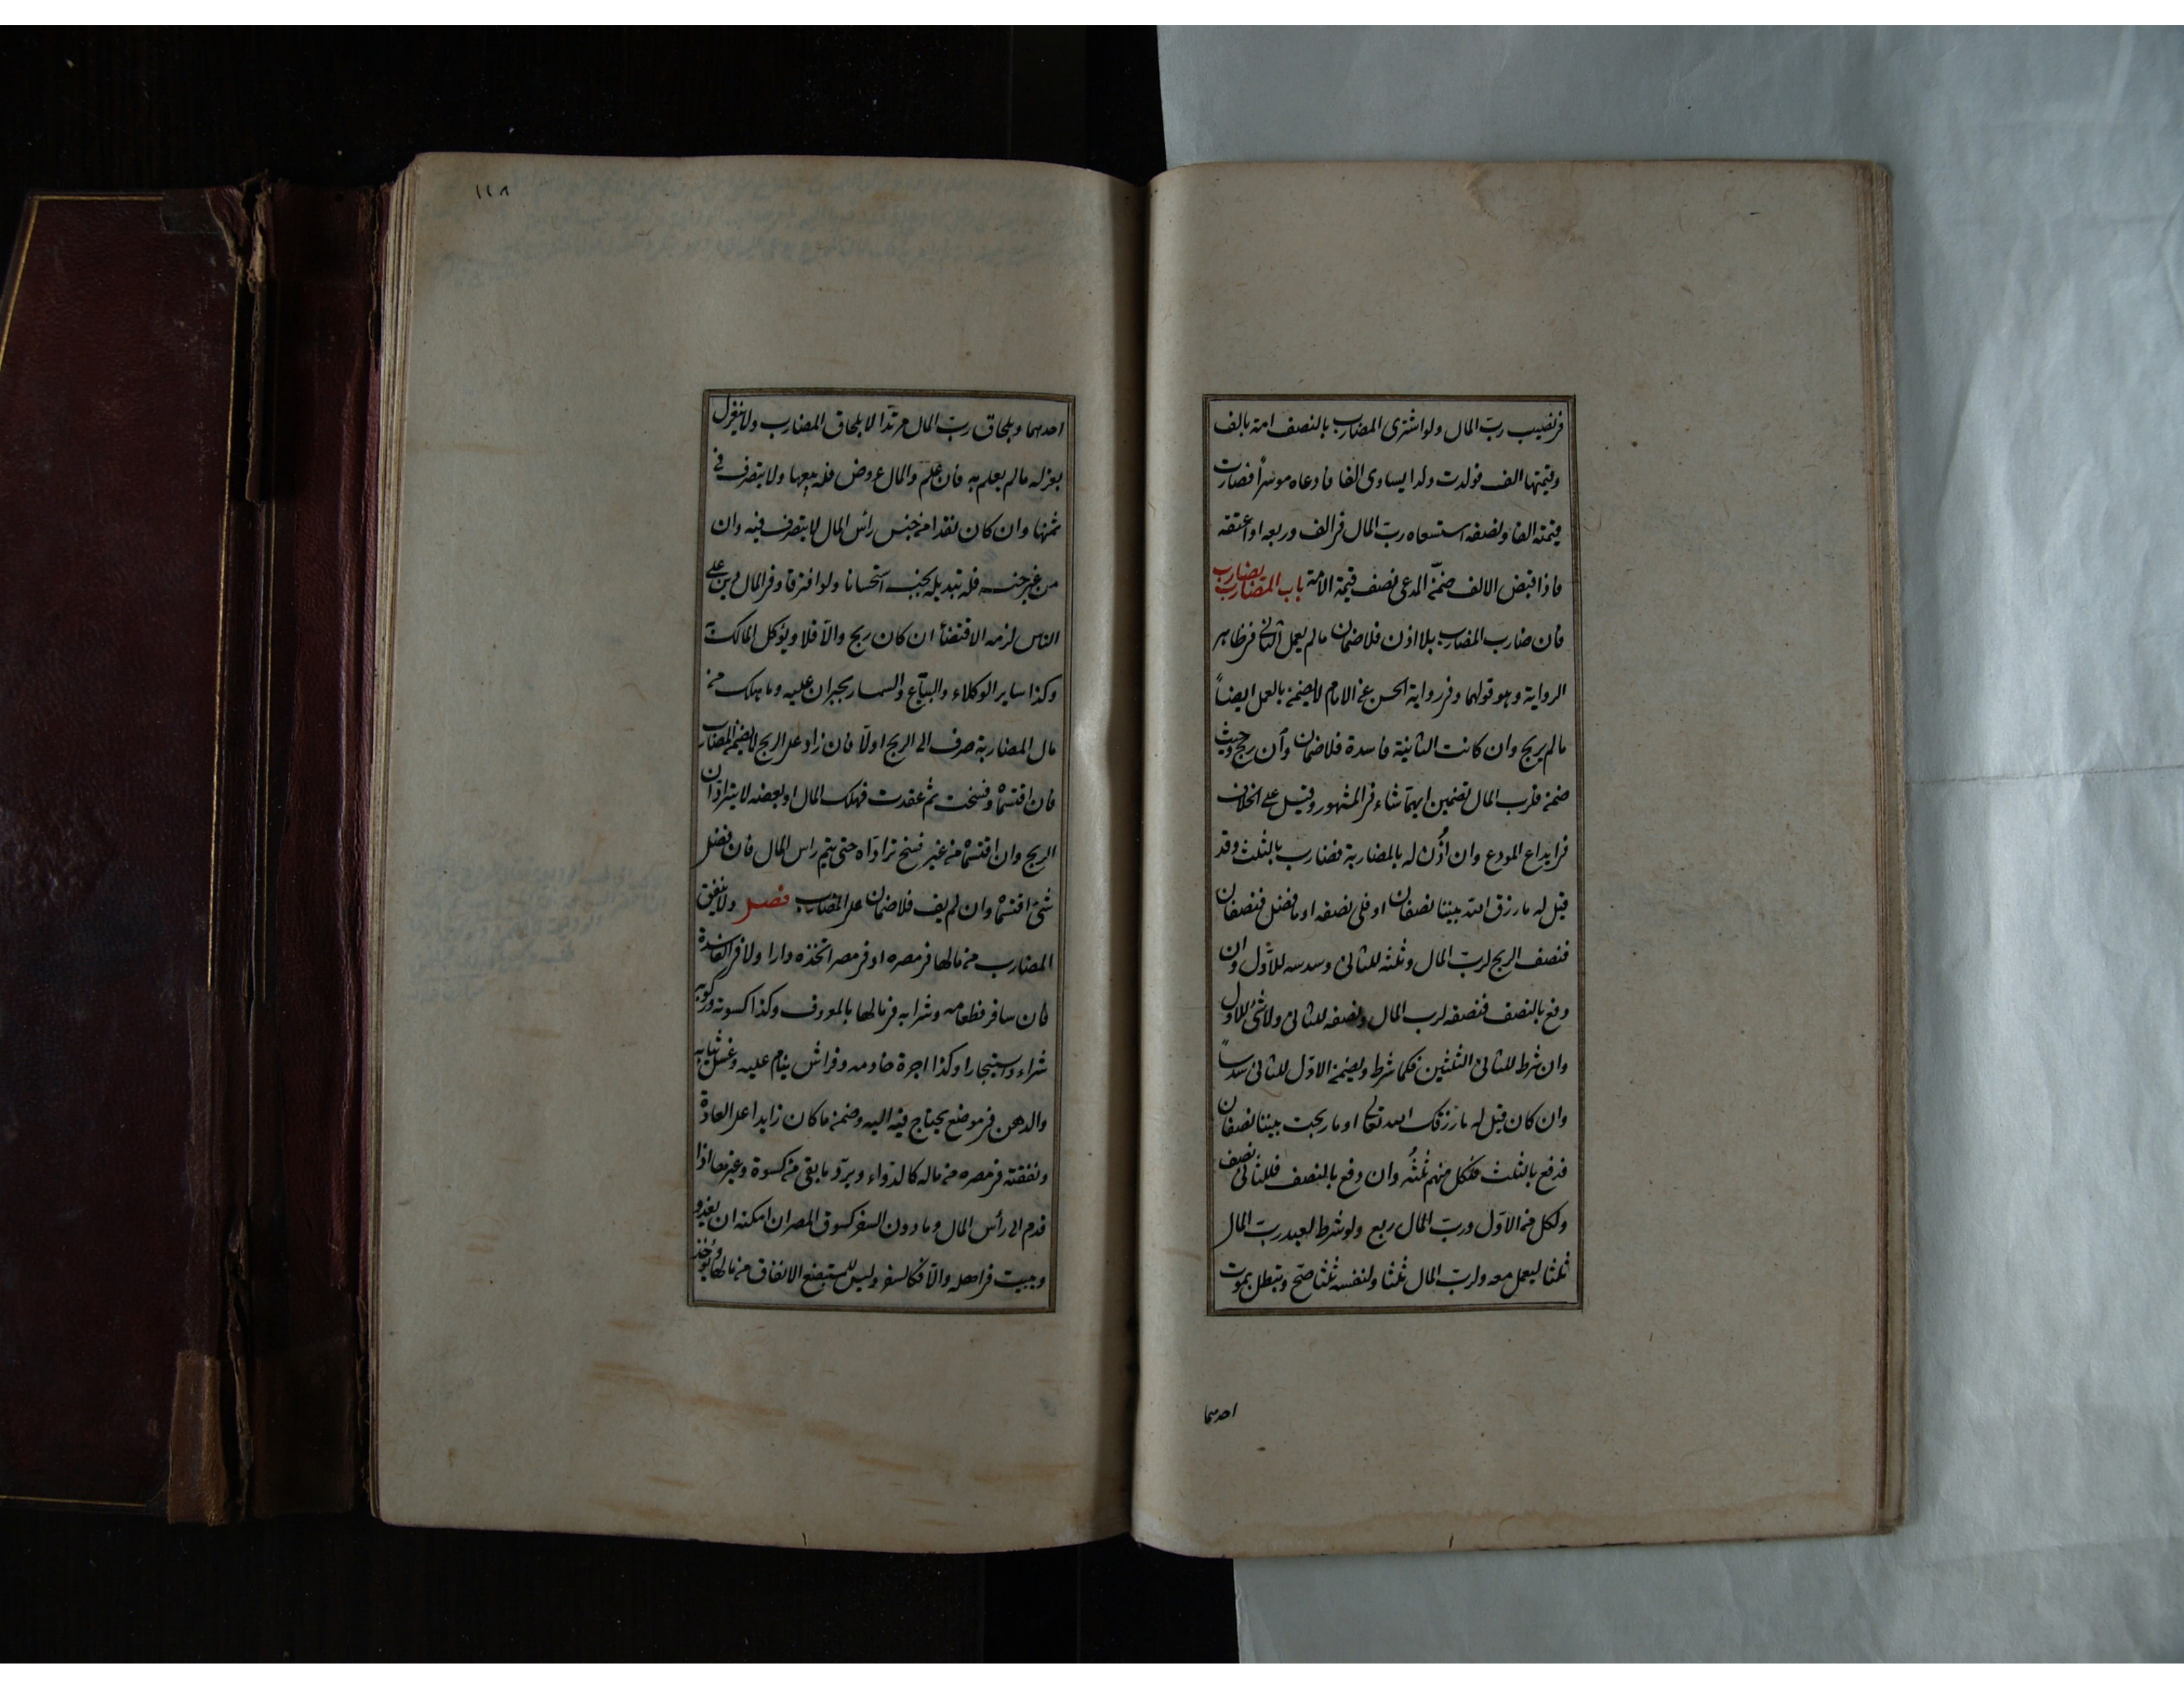 فى نصيب رب المال ولو اشترى المضارب بالنصف امة بالف
وقيمتها الف فولدت ولدا يساوى الفا فادعاه موسرا فصارت
قيمته الفا ونصفه استسعاه رب المال فى الف وربعه او اعتقه
فاذا قبض الالف ضمّنه المدعى نصف قيمة الامة باب المضارب يضارب
فان ضارب المضارب بلا اذن فلا ضمان ما لم يعمل الثانى فى ظاهر
الرواية وهو قولهما وفى رواية الحسن عن الامام لا يضمن بالعمل ايضاً
ما لم يربح وان كانت الثانية فاسدة فلا ضمان وأن ربح وحيث
ضمن فلرب المال تضمين ايهما شاء فى المشهور وقيل على الخلاف
فى ايداع المودع وان اُذن له بالمضاربة فضارب بالثلث وقد
قيل له ما رزق الله بيننا نصفان او فلى نصفه او ما فضل فنصفان
فنصف الربح لرب المال وثلثه للثانى وسدسه للاوّل وان
دفع بالنصف فنصفه لرب المال ونصفه للثانى ولا شئ للاول
وان شرط للثانى الثلثين فكما شرط ويضمن الاوّل للثانى سدساً
وان كان قيل له ما رزقك الله تعالى او ما ربحت بيننا نصفان
فدفع بالثلث فلكل منهم ثلثُه وان دفع بالنصف فللثانى نصف
ولكل من الاوّل ورب المال ربع ولو شرط لعبد رب المال
ثلثا ليعمل معه ولرب المال ثلثا ولنفسه ثلثا صحّ وتبطل بموت
احدهما
١١٨
احدهما وبلحاق رب المال مرتدّا لا بلحاق المضارب ولا ينعزل
بعزله ما لم يعلم به فان علم والمال عروض فله بيعها ولا يتصرف فى
ثمنها وان كان نقدا من جنس رأس المال لا يتصرف فيه وان
من غير جنسه فله تبديله بجنسه استحسانا ولو افترقا وفى المال دين على
الناس لزمه الاقتضاء ان كان ربح والاّ فلا ويوكل المالك به
وكذا ساير الوكلاء والبيّاع والسمسار يجبران عليه وما هلك من
مال المضاربة صرف الى الربح اولاً فان زاد على الربح لا يضمن المضارب
فان اقتسماه وفسخت ثم عقدت فهلك المال او بعضه لا يترادّان
الربح وان اقتسماه من غير فسخ ترادّاه حتى يتم راس المال فان فضل
شئ اقتسماه وان لم يف فلا ضمان على المضارب فصل ولا ينفق
المضارب من مالها فى مصره او فى مصر اتخذه دارا ولا فى الفاسدة
فان سافر فطعامه وشرابه فى مالها بالمعروف وكذا كسوته وركوبه
شراء واستيجارا وكذا اجرة خادمه وفراش ينام عليه وغسل ثيابه
والدهن فى موضع يحتاج فيه اليه وضمن ما كان زايدا على العادة
ونفقته فى مصره من ماله كالدواء ويردّ ما بقى من كسوة وغيرها اذا
قدم الى رأس المال وما دون السفر كسوق المصر ان امكنه ان يغدو
ويبيت فى اهله والاّ فكالسفر وليس للمستبضع الانفاق من مالها ويُؤخذ